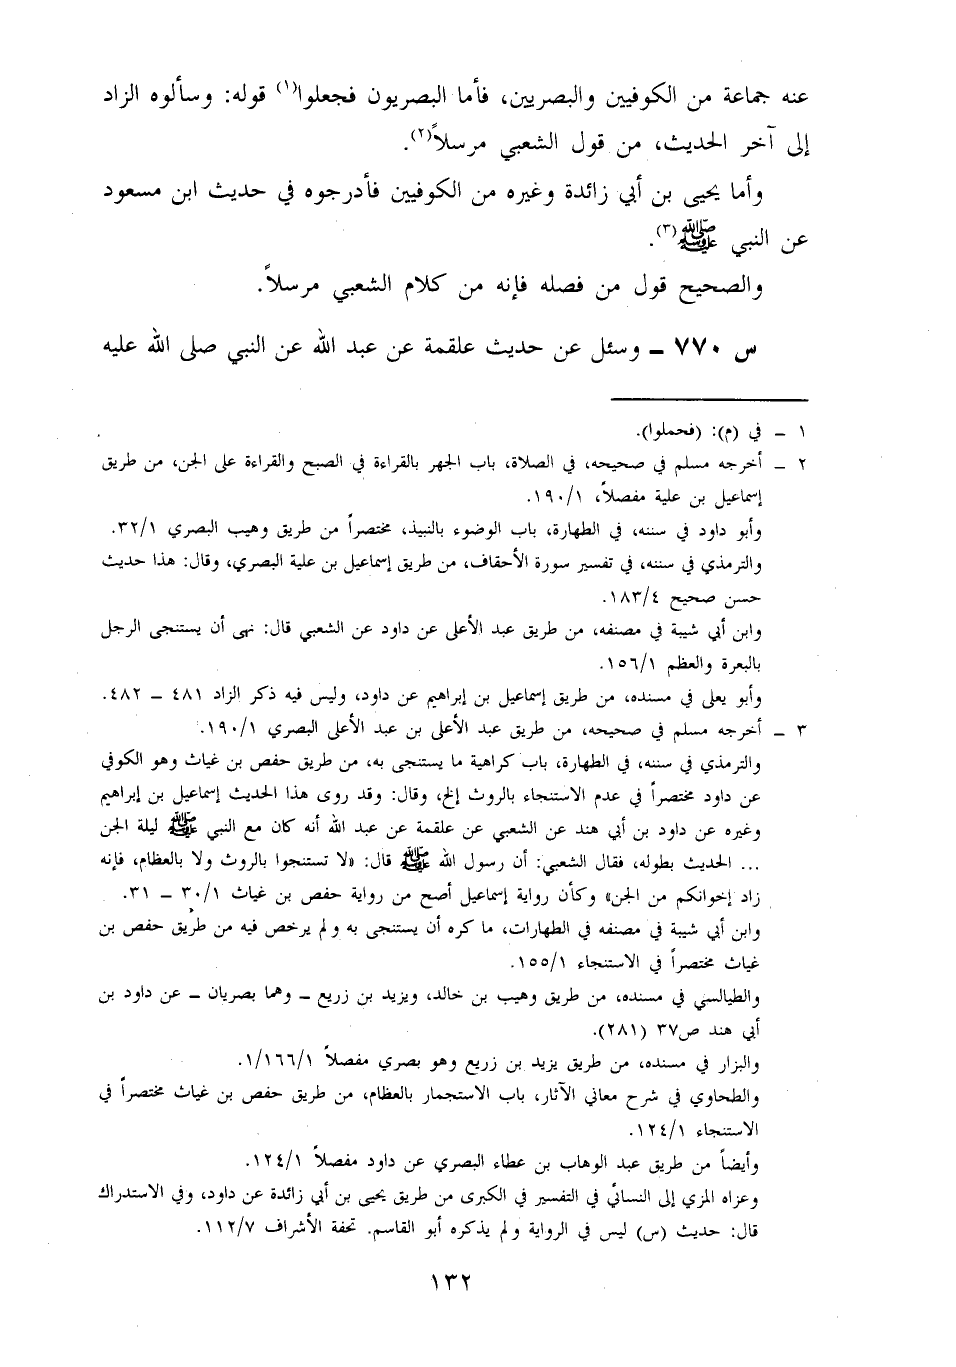 عنه جماعة من الكوفيين والبصريين، فأما البصريون فجعلوا(١) قوله: وسألوه الزاد
إلى آخر الحديث، من قول الشعبي مرسلاً(٢).
وأما يحيى بن أبي زائدة وغيره من الكوفيين فأدرجوه في حديث ابن مسعود
عن النبي ﷺ(٣).
والصحيح قول من فصله فإنه من كلام الشعبي مرسلاً.
س ٧٧٠ ــ وسئل عن حديث علقمة عن عبد الله عن النبي صلى الله عليه
١ ــ في (م): (فحملوا).
٢ ــ أخرجه مسلم في صحيحه، في الصلاة، باب الجهر بالقراءة في الصبح والقراءة على الجن، من طريق
إسماعيل بن علية مفصلاً، ١٩٠/١.
وأبو داود في سننه، في الطهارة، باب الوضوء بالنبيذ، مختصراً من طريق وهيب البصري ٣٢/١.
والترمذي في سننه، في تفسير سورة الأحقاف، من طريق إسماعيل بن علية البصري، وقال: هذا حديث
حسن صحيح ١٨٣/٤.
وابن أبي شيبة في مصنفه، من طريق عبد الأعلى عن داود عن الشعبي قال: نهى أن يستنجى الرجل
بالبعرة والعظم ١٥٦/١.
وأبو يعلى في مسنده، من طريق إسماعيل بن إبراهيم عن داود، وليس فيه ذكر الزاد ٤٨١ ــ ٤٨٢.
٣ ــ أخرجه مسلم في صحيحه، من طريق عبد الأعلى بن عبد الأعلى البصري ١٩٠/١.
والترمذي في سننه، في الطهارة، باب كراهية ما يستنجى به، من طريق حفص بن غياث وهو الكوفي
عن داود مختصراً في عدم الاستنجاء بالروث إلخ، وقال: وقد روى هذا الحديث إسماعيل بن إبراهيم
وغيره عن داود بن أبي هند عن الشعبي عن علقمة عن عبد الله أنه كان مع النبي ﷺ ليلة الجن
... الحديث بطوله، فقال الشعبي: أن رسول الله ﷺ قال: «لا تستنجوا بالروث ولا بالعظام، فإنه
زاد إخوانكم من الجن» وكأن رواية إسماعيل أصح من رواية حفص بن غياث ٣٠/١ ــ ٣١.
وابن أبي شيبة في مصنفه في الطهارات، ما كره أن يستنجى به ولم يرخص فيه من طريق حفص بن
غياث مختصراً في الاستنجاء ١٥٥/١.
والطيالسي في مسنده، من طريق وهيب بن خالد، ويزيد بن زريع ــ وهما بصريان ــ عن داود بن
أبي هند ص٣٧ (٢٨١).
والبزار في مسنده، من طريق يزيد بن زريع وهو بصري مفصلاً ١/١٦٦/١.
والطحاوي في شرح معاني الآثار، باب الاستجمار بالعظام، من طريق حفص بن غياث مختصراً في
الاستنجاء ١٢٤/١.
وأيضاً من طريق عبد الوهاب بن عطاء البصري عن داود مفصلاً ١٢٤/١.
وعزاه المزي إلى النسائي في التفسير في الكبرى من طريق يحيى بن أبي زائدة عن داود، وفي الاستدراك
قال: حديث (س) ليس في الرواية ولم يذكره أبو القاسم. تحفة الأشراف ١١٢/٧.
١٣٢